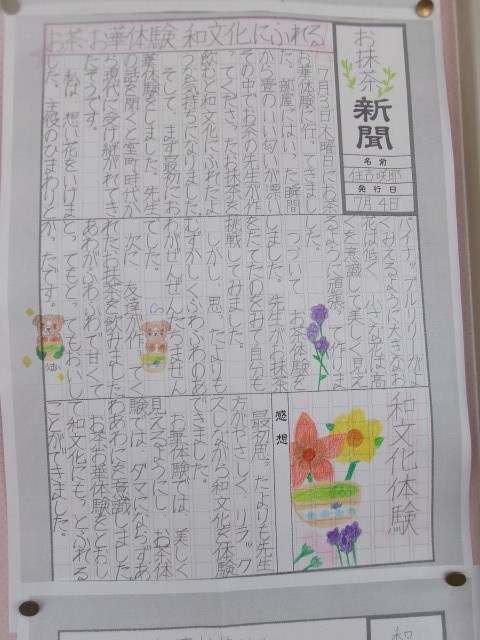 お茶・お華体験 和文化にふれる
お抹茶
新聞
名前
住吉咲耶
発行日
7月4日
7月3日木曜日にお茶
お華体験に行ってきまし
た。部屋にはいった瞬間
から畳のいい匂いが漂い
その中でお茶の先生が作
ってくださったお抹茶を
飲むと和文化にふれたよ
うな気持ちになりました。
そして、まず最初にお
華体験をしました。先生
の話を聞くと室町時代か
ら現代に受け継がれてき
たそうです。
私は、想い花をいけま
した。主役のひまわりと
パイナップルリリーがよ
くみえるように大きなお
花は低く、小さな花は高
くを意識して美しく見え
るように頑張って作りま
した。
つづいて、お茶体験を
しました。先生がお抹茶
をたてたのをみて自分も
挑戦してみました。
しかし、思ったよりも
むずかしくふわふわのあ
わがぜんぜんたちません
でした。
次に、友達が作ってく
れたお抹茶を飲みました。
あわがふわふわで甘くて
とってもとってもおいし
かったです。
うまい
和文化体験
感想
最初思ったよりも先生
方がやさしく、リラック
スしながら和文化を体験
できました。
お華体験では、美しく
見えるようにし、お茶体
験では、ダマにならずあ
わあわにを意識しました。
お茶・お華体験をとおし
て和文化にもっとふれる
ことができました。